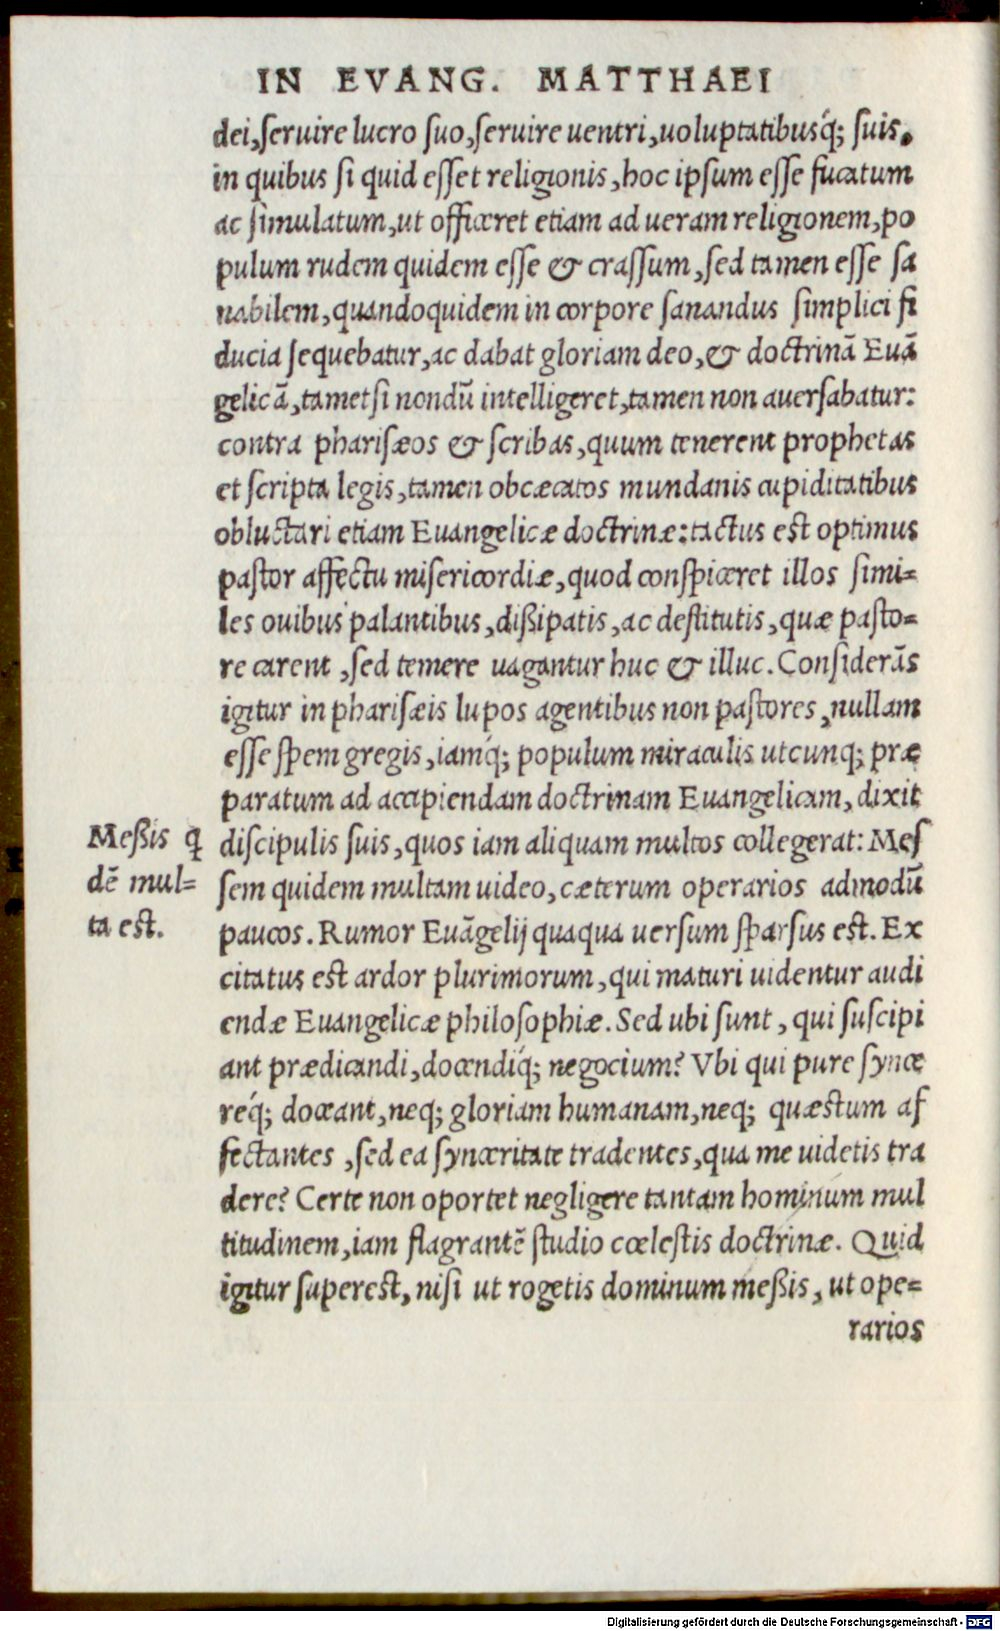 IN EVANG. MATTHAEI
dei,ſeruire lucro ſuo,ſeruire uentri,uoluptatibusq́; ſuis.
in quibus ſi quid eſſet religionis,hoc ipſum eſſe fucatum
ac ſimulatum,ut officeret etiam ad ueram religionem,po
pulum rudem quidem eſſe & craſſum,ſed tamen eſſe ſa
nabilem,quandoquidem in corpore ſanandus ſimplici fi
ducia ſequebatur,ac dabat gloriam deo,& doctrinã Euã
gelicã,tametſi nondũ intelligeret,tamen non auerſabatur:
contra phariſæos & ſcribas,quum tenerent prophetas
et ſcripta legis,tamen obcæcatos mundanis cupiditatibus
obluctari etiam Euangelicæ doctrinæ:tactus est optimus
paſtor affectu miſericordiæ,quod conſpiceret illos ſimi=
les ouibus palantibus,dißipatis,ac deſtitutis,quæ paſto=
re carent,ſed temere uagantur huc & illuc.Conſiderãs
igitur in phariſæis lupos agentibus non paſtores,nullam
eſſe ſpem gregis,iamq́; populum miraculis utcunq; præ
paratum ad accipiendam doctrinam Euangelicam,dixit
Meßis q̃
dẽ mul=
ta est.
diſcipulis ſuis,quos iam aliquam multos collegerat:Meſ
ſem quidem multam uideo,cæterum operarios admodũ
paucos.Rumor Euãgelij quaqua uerſum ſparſus est.Ex
citatus est ardor plurimorum,qui maturi uidentur audi
endæ Euangelicæ philoſophiæ.Sed ubi ſunt,qui ſuſcipi
ant prædicandi,docendiq́; negocium? Vbi qui pure ſynce
req́; doceant,neq; gloriam humanam,neq; quæstum af
fectantes,ſed ea ſynceritate tradentes,qua me uidetis tra
dere? Certe non oportet negligere tantam hominum mul
titudinem,iam flagrantẽ ſtudio cœleſtis doctrinæ. Quid
igitur ſuperest,niſi ut rogetis dominum meßis,ut ope=
rarios
Digitalisierung gefördert durch die Deutsche Forschungsgemeinschaft - DFG